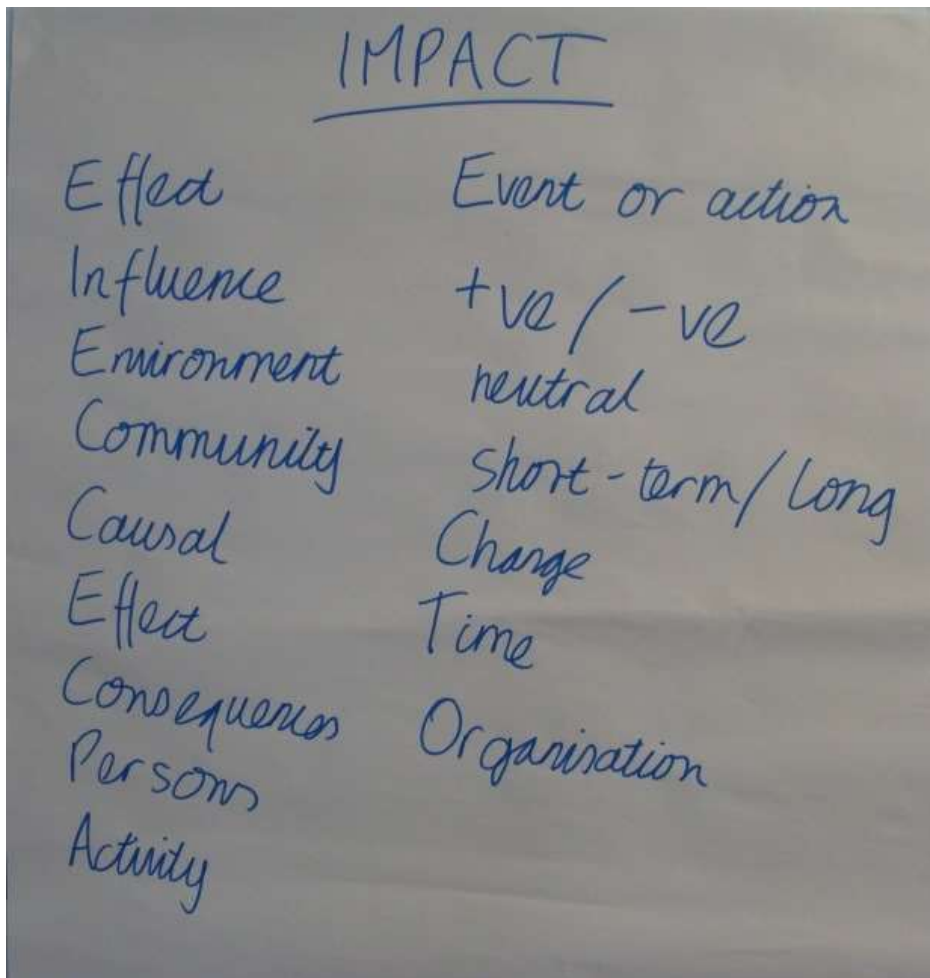 IMPACT
Effect
Influence
Environment
Community
Causal
Effect
Consequences
Persons
Activity
Event or action
+ve / -ve
neutral
short-term / long
Change
Time
Organisation